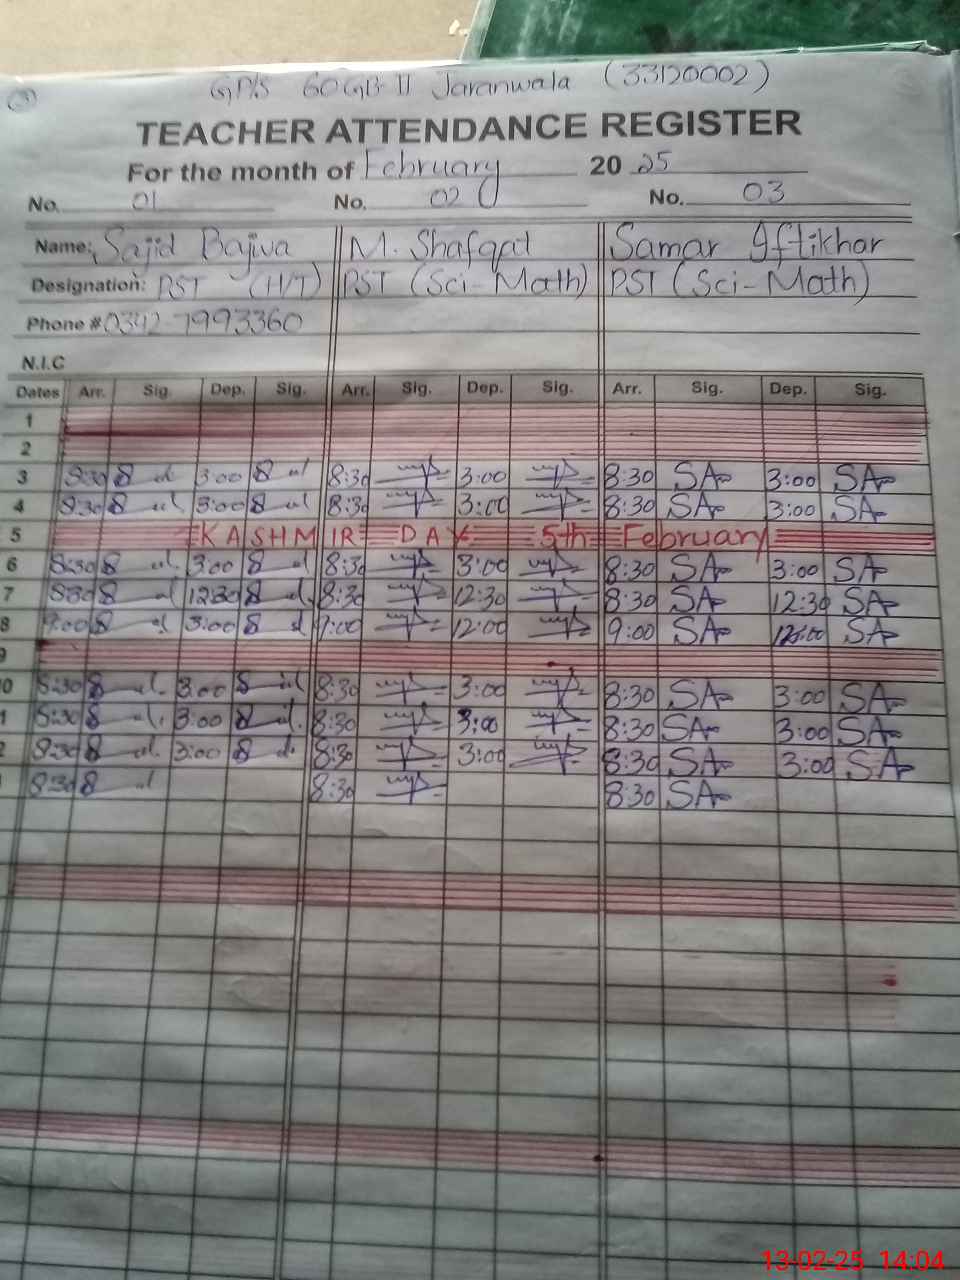 GP/S 60GB-II Jaranwala (33120002)
TEACHER ATTENDANCE REGISTER
For the month of February 20 25
No. 01 No. 02 No. 03
Name: Sajid Bajwa M. Shafqat Samar Iftikhar
Designation: PST (H/T) PST (Sci-Math) PST (Sci-Math)
Phone # 0342-7993360
N.I.C
Dates Arr. Sig. Dep. Sig. Arr. Sig. Dep. Sig. Arr. Sig. Dep. Sig.
1
2
3 8:30 3:00 8:30 3:00 8:30 SA 3:00 SA
4 8:30 3:00 8:30 3:00 8:30 SA 3:00 SA
5 KASHMIR DAY 5th February
6 8:30 3:00 8:30 3:00 8:30 SA 3:00 SA
7 8:30 12:30 8:30 12:30 8:30 SA 12:30 SA
8 9:00 3:00 9:00 12:00 9:00 SA 12:00 SA
9
0 8:30 3:00 8:30 3:00 8:30 SA 3:00 SA
1 8:30 3:00 8:30 3:00 8:30 SA 3:00 SA
2 8:30 3:00 8:30 3:00 8:30 SA 3:00 SA
8:30 8:30 8:30 SA
13-02-25 14:04